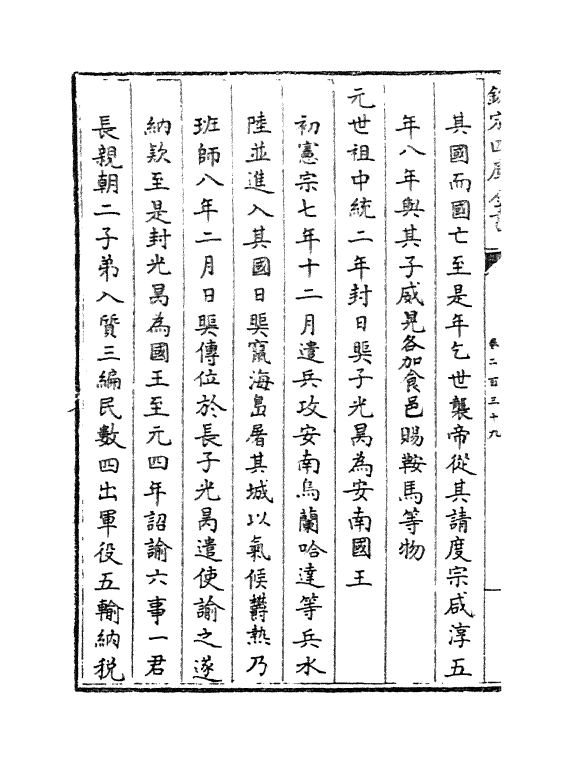 欽定四庫全書
卷二百三十九
其國而國亡至是年乞世襲帝從其請度宗咸淳五
年八年與其子威晃各加食邑賜鞍馬等物
元世祖中統二年封日煚子光昺為安南國王
初憲宗七年十二月遣兵攻安南烏蘭哈達等兵水
陸並進入其國日煚竄海島屠其城以氣候鬱熱乃
班師八年二月日煚傳位於長子光昺遣使諭之遂
納欵至是封光昺為國王至元四年詔諭六事一君
長親朝二子弟入質三編民數四出軍役五輸納稅